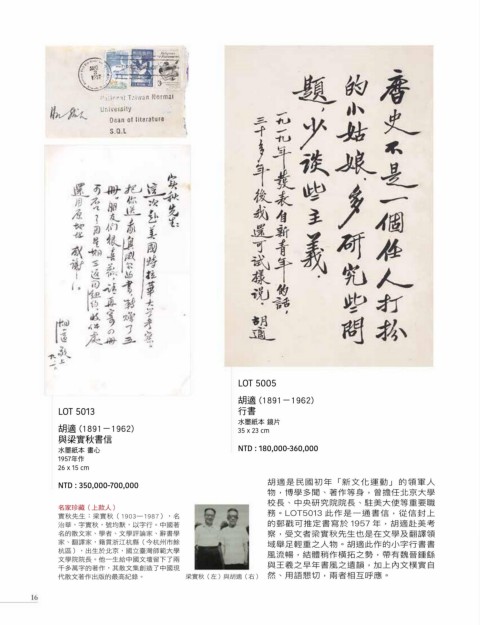 National Taiwan Normal
University
Dean of literature
S.Q.L
實秋先生:
這次赴美國特拉華大學考察,
冊。朋友們很喜歡,請再寄
還用原地址 感謝!
胡適 敬上
歷史不是一個任人打扮
的小姑娘.多研究些問
題少談些主義.
一九一九年發表自新青年的話,
三十多年後我還可試樣說. 胡適
LOT 5013
胡適(1891-1962)
與梁實秋書信
水墨紙本 畫心
1957年作
26 x 15 cm
NTD : 350,000-700,000
LOT 5005
胡適(1891-1962)
行書
水墨紙本 鏡片
35 x 23 cm
NTD : 180,000-360,000
名家珍藏(上款人)
實秋先生:梁實秋(1903-1987),名
治華,字實秋,號均默,以字行,中國著
名的散文家、學者、文學評論家、辭書學
家、翻譯家,籍貫浙江杭縣(今杭州市餘
杭區),出生於北京,國立臺灣師範大學
文學院院長。他一生給中國文壇留下了兩
千多萬字的著作,其散文集創造了中國現
代散文著作出版的最高紀錄。
梁實秋(左)與胡適(右)
胡適是民國初年「新文化運動」的領軍人
物,博學多聞、著作等身,曾擔任北京大學
校長、中央研究院院長、駐美大使等重要職
務。LOT5013此作是一通書信,從信封上
的郵戳可推定書寫於1957年,胡適赴美考
察,受文者梁實秋先生也是在文學及翻譯領
域舉足輕重之人物。胡適此作的小字行書書
風流暢,結體稍作橫拓之勢,帶有魏晉鍾繇
與王羲之早年書風之遺韻,加上內文樸實自
然、用語懇切,兩者相互呼應。
16